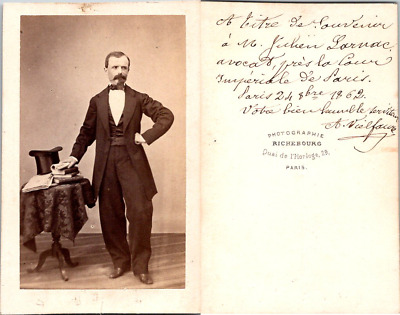 A titre de Souvenir
à M. Julien Larnac,
avocat, près la Cour
Impériale de Paris.
Paris 24 8bre 1862.
Votre bien humble serviteur
PHOTOGRAPHIE
RICHEBOURG
Quai de l'Horloge, 29,
PARIS.